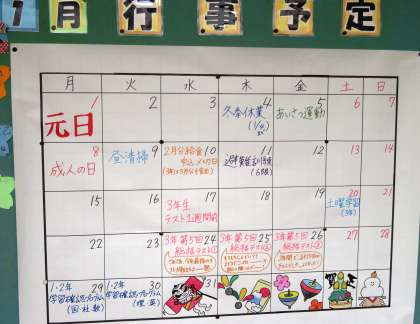 1月行事予定
月 火 水 木 金 土 日
1
元日
2
3
4
冬季休業
5
あいさつ運動
6
7
8
成人の日
9
昼清掃
10
2月分給食
11
避難訓練
(6限)
12
13
14
15
16
17
3年生
テスト1週間前
18
19
20
土曜学習
(3年)
21
22
23
24
3年第5回
総括テスト①
25
3年第5回
総括テスト②
26
3年第5回
総括テスト③
27
28
29
1・2年
学習確認プログラム
(国・社・数)
30
1・2年
学習確認プログラム
(理・英)
31